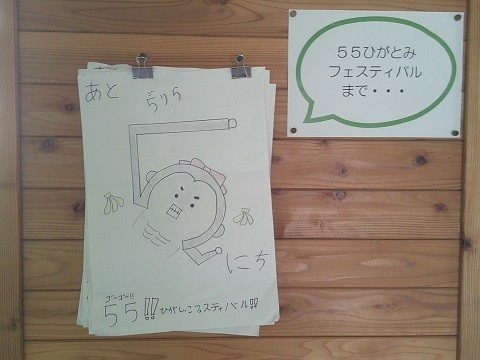 ５５ひがとみ
フェスティバル
まで・・・
あと
5
にち
ゴーゴー!!
55!! ひがしっこフェスティバル!!